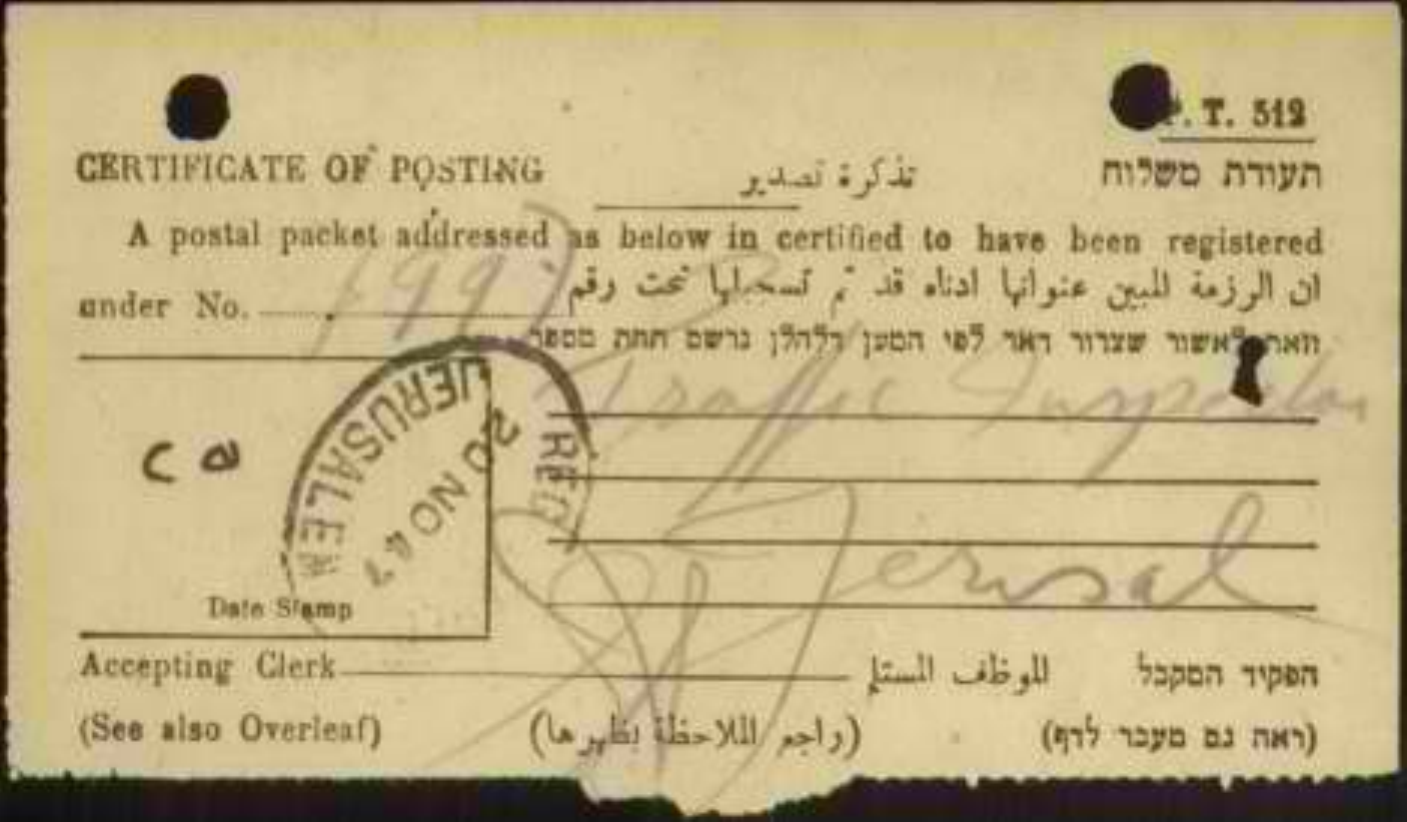 P. T. 512
CERTIFICATE OF POSTING تذكرة تصدير תעודת משלוח
A postal packet addressed as below in certified to have been registered
ان الرزمة المبين عنوانها ادناه قد تم تسجيلها تحت رقم
under No. 1997
וזאת לאשור שצרור דאר לפי המען דלהלן נרשם תחת מספר
Traffic Inspector
Jerusal
REG JERUSALEM
20 NO 47
Date Stamp
Accepting Clerk للموظف المستلم הפקיד המקבל
(See also Overleaf) (راجع الملاحظة بظهرها) (ראה גם מעבר לדף)